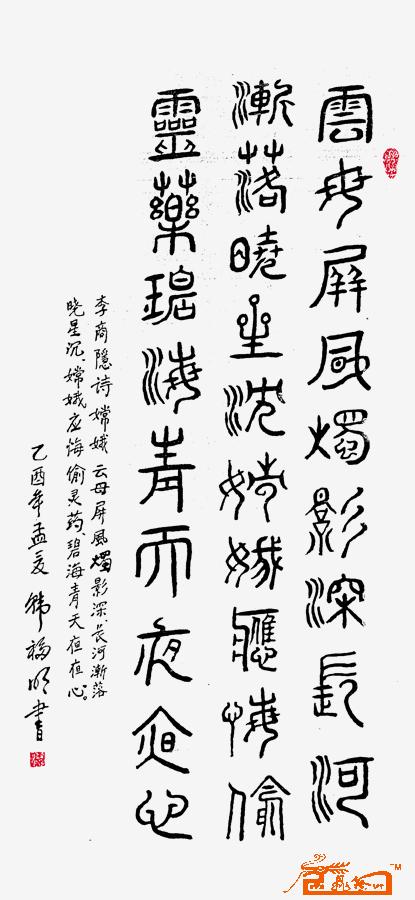 雲母屏風燭影深長河
漸落曉星沈嫦娥應悔偷
靈藥碧海青天夜夜心
李商隐詩嫦娥云母屏風燭影深長河漸落
晓星沉嫦娥应悔偷灵药碧海青天夜夜心。
乙酉年孟夏韩福明書